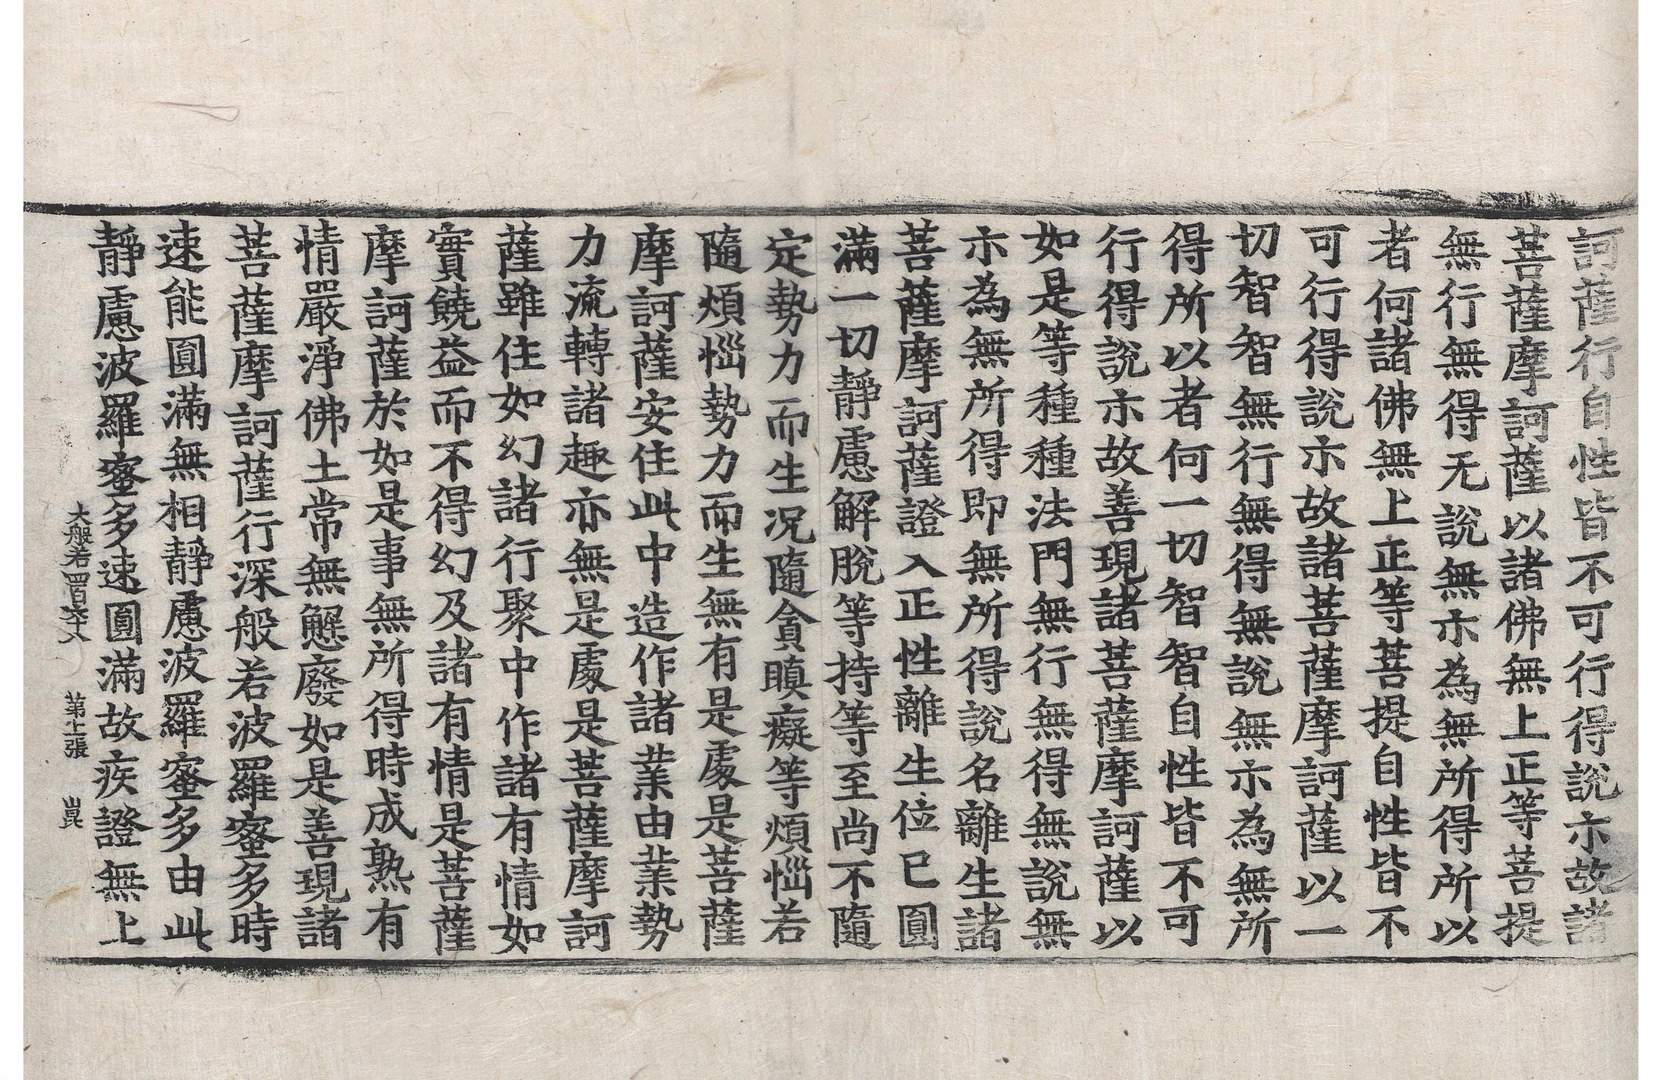 訶薩行自性皆不可行得說示故諸
菩薩摩訶薩以諸佛無上正等菩提
無行無得无說無示為無所得所以
者何諸佛無上正等菩提自性皆不
可行得說示故諸菩薩摩訶薩以一
切智智無行無得無說無示為無所
得所以者何一切智智自性皆不可
行得說示故善現諸菩薩摩訶薩以
如是等種種法門無行無得無說無
示為無所得即無所得說名離生諸
菩薩摩訶薩證入正性離生位已圓
滿一切靜慮解脫等持等至尚不隨
定勢力而生况隨貪瞋癡等煩惱若
隨煩惱勢力而生無有是處是菩薩
摩訶薩安住此中造作諸業由業勢
力流轉諸趣亦無是處是菩薩摩訶
薩雖住如幻諸行聚中作諸有情如
實饒益而不得幻及諸有情是菩薩
摩訶薩於如是事無所得時成熟有
情嚴淨佛土常無懈廢如是善現諸
菩薩摩訶薩行深般若波羅蜜多時
速能圓滿無相靜慮波羅蜜多由此
靜慮波羅蜜多速圓滿故疾證無上
大般若四百六十八 第十一張 崑